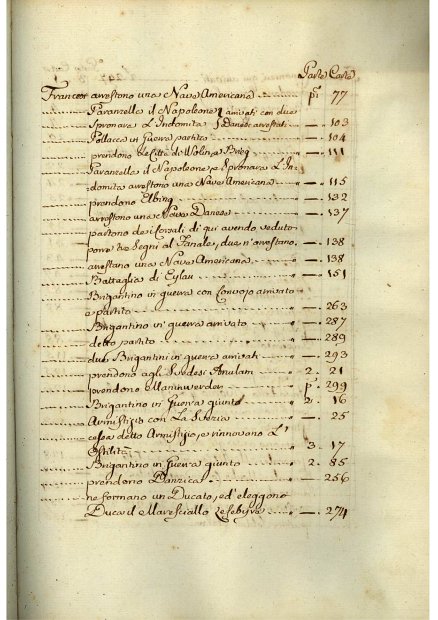 Parte Carte
Francesi arrestono una Nave Americana pª 77
Paranzelle il Napoleone arrivati con due
Spronara L'Indomita Danesi arrestati — 103
Pollacca in Guerra partita — 104
prendono le Città di Wolin, e Brieg — 111
Paranzella il Napoleone, e Spronara L'In-
domita arrestono una Nave Americana — 115
prendono Elbing — 132
arrestono una Nave Danese — 137
partono dei Corsali di qui avendo veduto
porre tre Segni al Fanale, due n'arrestano. — 138
arrestano una Nave Americana — 138
Battaglia di Eylau — 151
Brigantino in guerra con Convojo arrivato
e partito — 263
Brigantino in guerra arrivato — 287
detto partito — 289
due Brigantini in guerra arrivati — 293
prendono agli Svedesi 2. 21
prendono Marinwerder pª 299
Brigantino in Guerra giunto 2. 16
Armistizio con La Svezia — 25
cessa detto Armistizio, e rinnovano L'
Ostilità 3. 17
Brigantino in Guerra giunto 2. 85
prendono Danzica — 256
ne formano un Ducato, ed eleggono
Duca il Maresciallo Lefebvre — 274